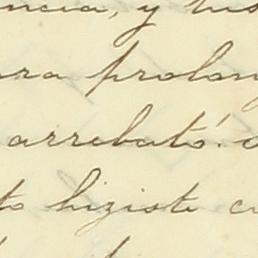 ncia, y tus
ra prolon
arrebató.
to hiziste